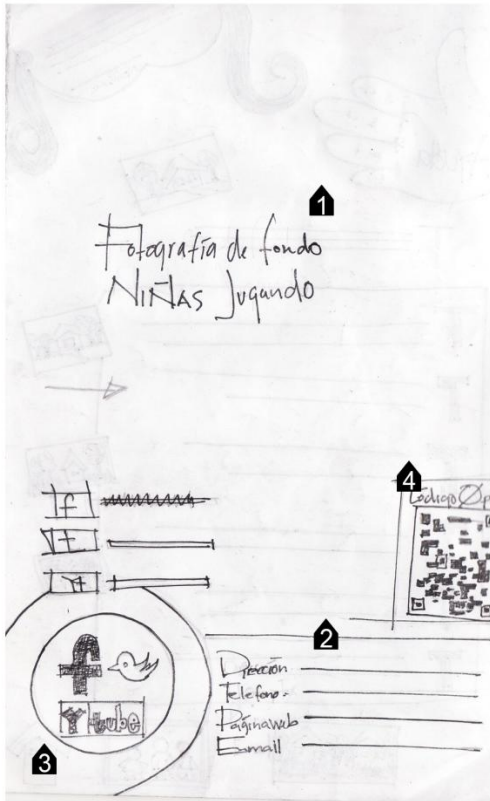 1
Fotografía de fondo
NIÑAS Jugando
4
Código Óp
f
t
Yt
2
f
Y tube
Dirección
Telefono.
Página web
E-mail
3